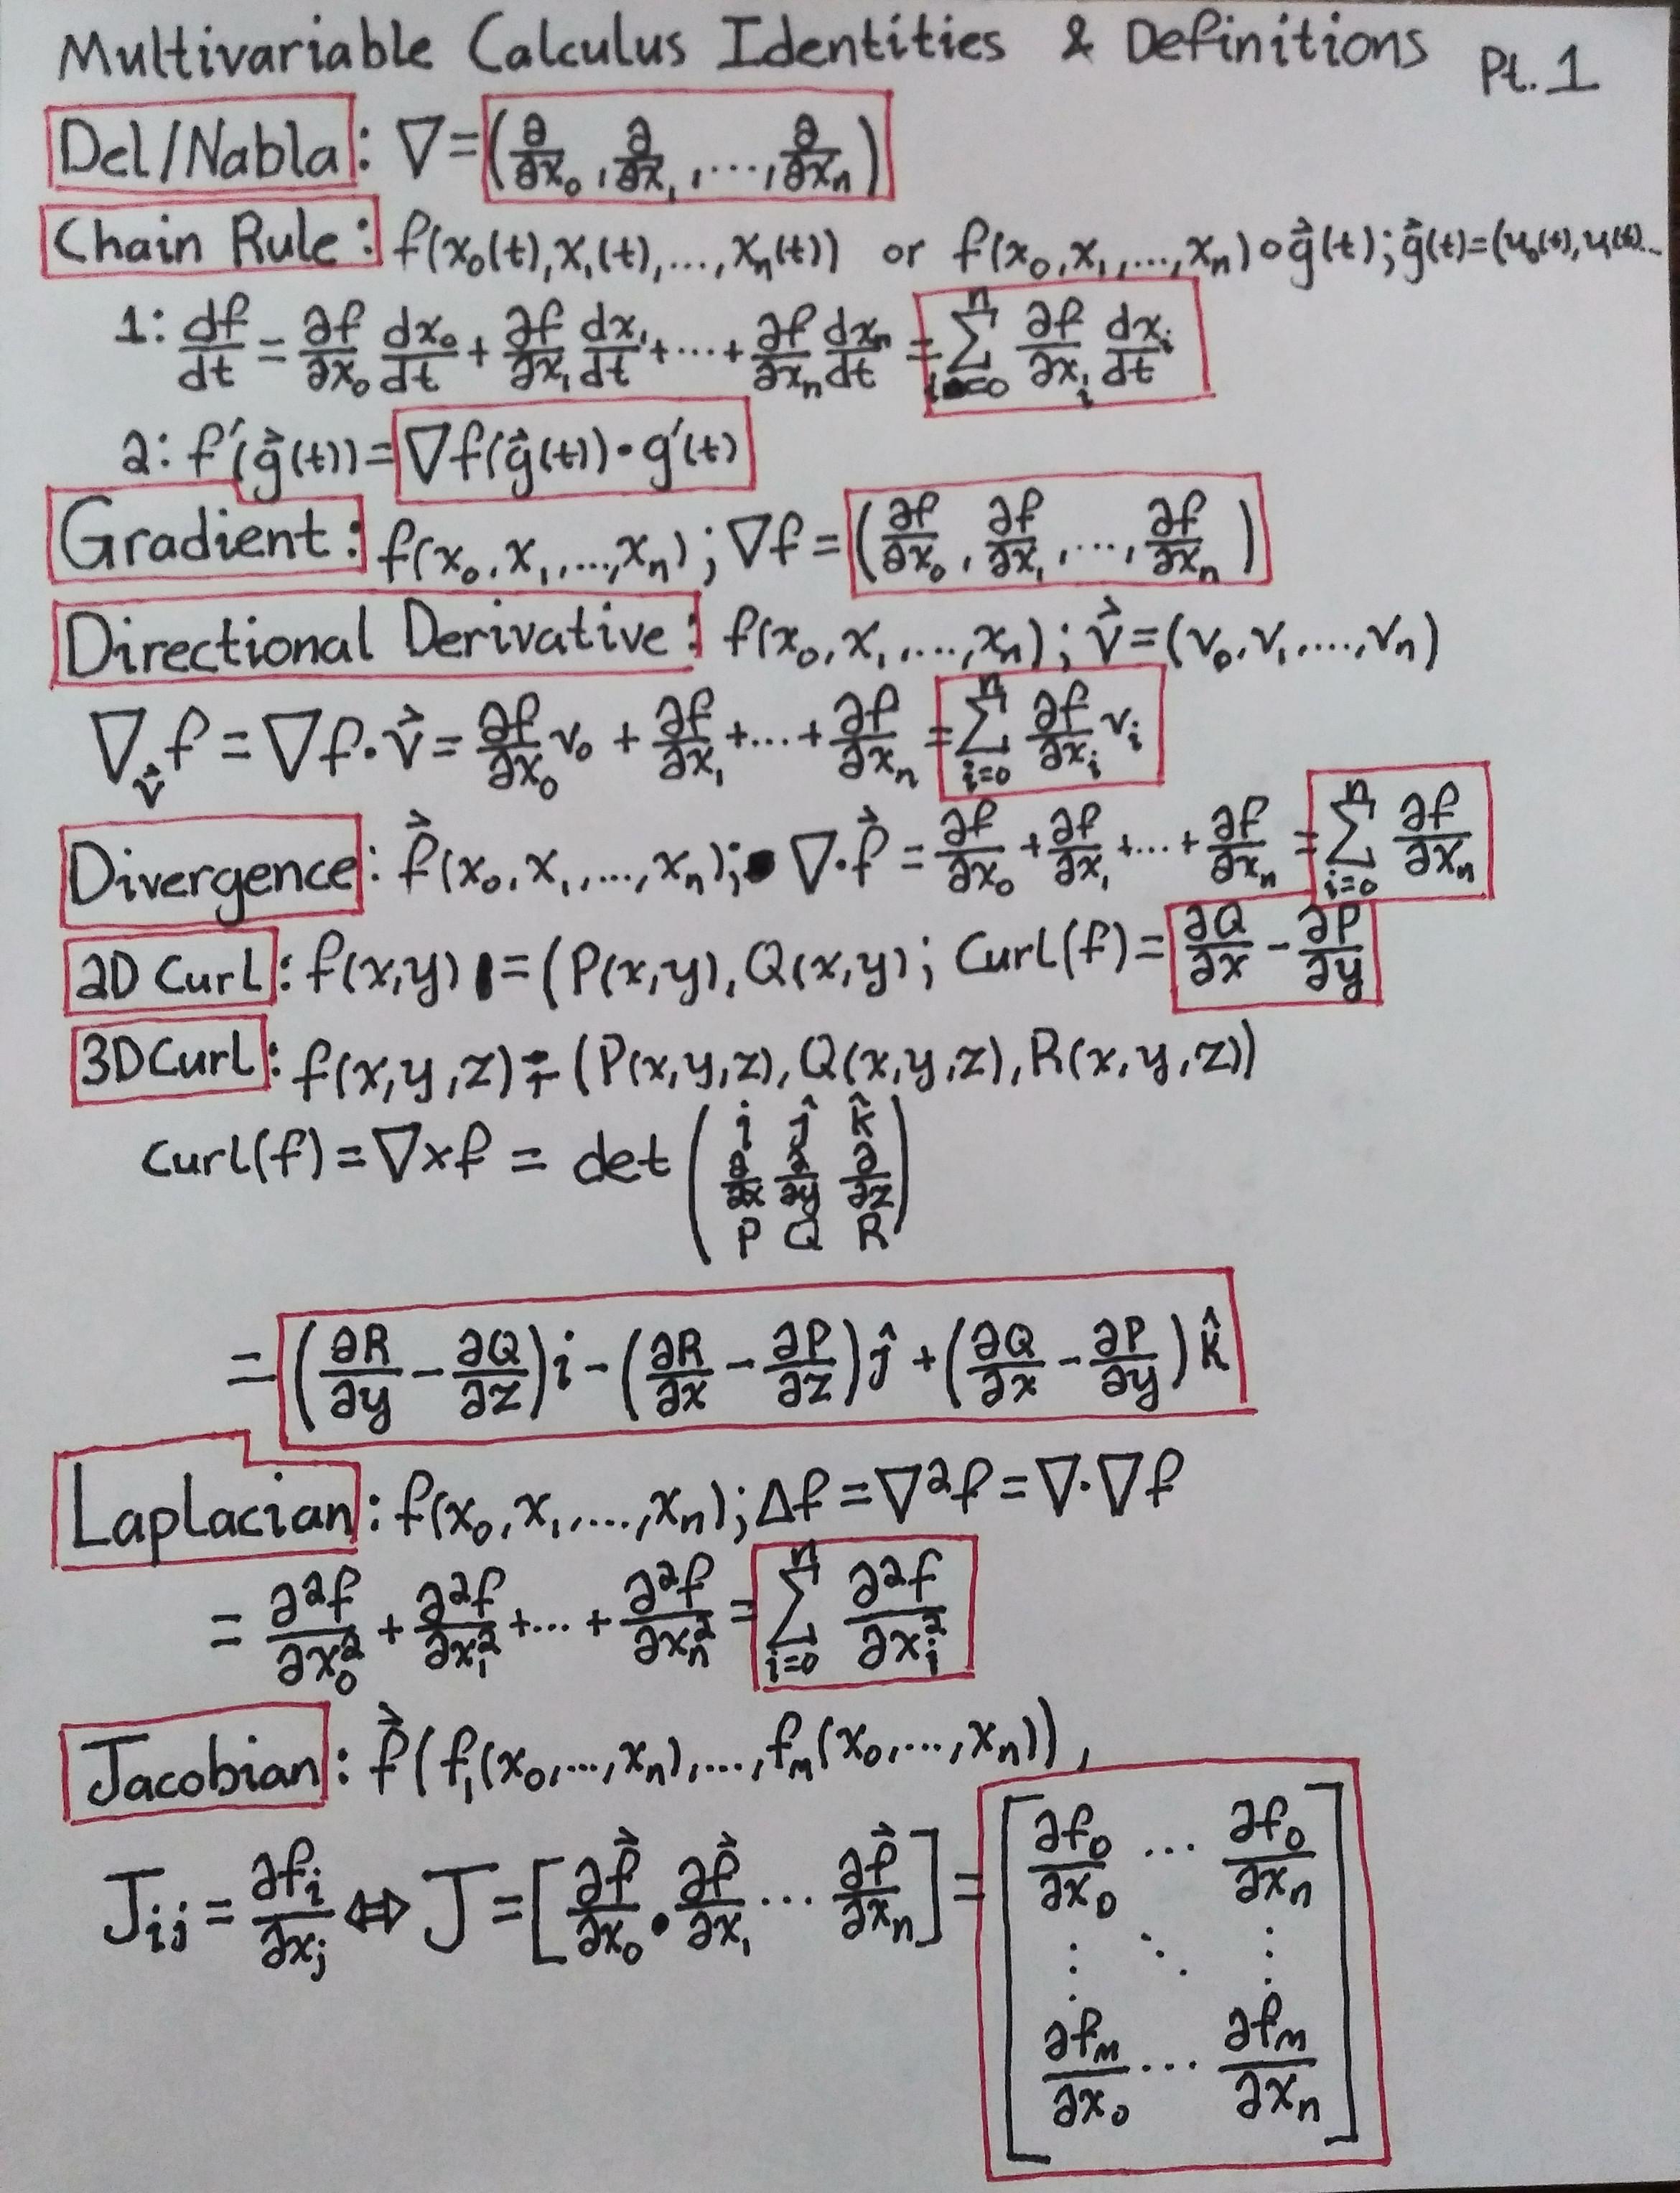 Multivariable Calculus Identities & Definitions Pt. 1
Del/Nabla: ∇ = (∂/∂x₀, ∂/∂x₁, ..., ∂/∂xₙ)
Chain Rule: f(x₀(t), x₁(t), ..., xₙ(t)) or f(x₀, x₁, ..., xₙ)∘g⃗(t); g⃗(t)=(u₀(t), u₁(t)...
1: df/dt = ∂f/∂x₀ dx₀/dt + ∂f/∂x₁ dx₁/dt + ... + ∂f/∂xₙ dxₙ/dt = ∑ᵢ₌₀ⁿ ∂f/∂xᵢ dxᵢ/dt
2: f′(g⃗(t)) = ∇f(g⃗(t))·g′(t)
Gradient: f(x₀, x₁, ..., xₙ); ∇f = (∂f/∂x₀, ∂f/∂x₁, ..., ∂f/∂xₙ)
Directional Derivative: f(x₀, x₁, ..., xₙ); v⃗ = (v₀, v₁, ..., vₙ)
∇_v⃗ f = ∇f·v⃗ = ∂f/∂x₀ v₀ + ∂f/∂x₁ + ... + ∂f/∂xₙ = ∑ᵢ₌₀ⁿ ∂f/∂xᵢ vᵢ
Divergence: f⃗(x₀, x₁, ..., xₙ); ∇·f⃗ = ∂f/∂x₀ + ∂f/∂x₁ + ... + ∂f/∂xₙ = ∑ᵢ₌₀ⁿ ∂f/∂xₙ
2D Curl: f(x,y) = (P(x,y), Q(x,y); Curl(f) = ∂Q/∂x - ∂P/∂y
3D Curl: f(x,y,z) = (P(x,y,z), Q(x,y,z), R(x,y,z))
Curl(f) = ∇×f = det (i ĵ k̂
∂/∂x ∂/∂y ∂/∂z
P Q R)
= (∂R/∂y - ∂Q/∂z)i - (∂R/∂x - ∂P/∂z)ĵ + (∂Q/∂x - ∂P/∂y)k̂
Laplacian: f(x₀, x₁, ..., xₙ); Δf = ∇²f = ∇·∇f
= ∂²f/∂x₀² + ∂²f/∂x₁² + ... + ∂²f/∂xₙ² = ∑ᵢ₌₀ⁿ ∂²f/∂xᵢ²
Jacobian: f⃗(f₁(x₀, ..., xₙ), ..., fₘ(x₀, ..., xₙ)),
Jᵢⱼ = ∂fᵢ/∂xⱼ ⇔ J = [∂f⃗/∂x₀ · ∂f⃗/∂x₁ ... ∂f⃗/∂xₙ] = [∂f₀/∂x₀ ... ∂f₀/∂xₙ
⋮ ⋱ ⋮
∂fₘ/∂x₀ ... ∂fₘ/∂xₙ]